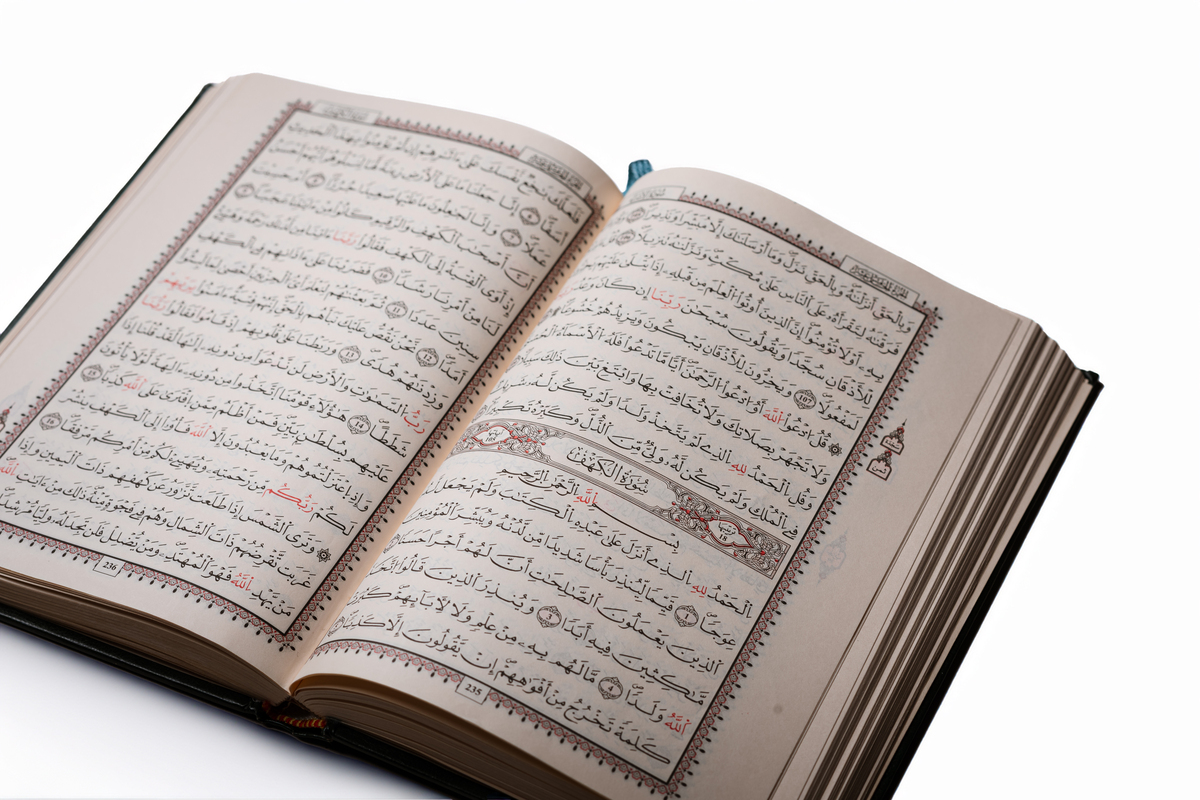 وَبِالْحَقِّ أَنزَلْنَٰهُ وَبِالْحَقِّ نَزَلَ وَمَا أَرْسَلْنَٰكَ إِلَّا مُبَشِّرًا وَنَذِيرًا
فَرَقْنَٰهُ لِتَقْرَأَهُ عَلَى النَّاسِ عَلَىٰ مُكْثٍ وَنَزَّلْنَٰهُ تَنزِيلًا
بِهِ أَوْ لَا تُؤْمِنُوا إِنَّ الَّذِينَ أُوتُوا الْعِلْمَ مِن قَبْلِهِ إِذَا يُتْلَىٰ عَلَيْهِمْ
لِلْأَذْقَانِ سُجَّدًا وَيَقُولُونَ سُبْحَٰنَ رَبِّنَا إِن كَانَ وَعْدُ
لَمَفْعُولًا 107 وَيَخِرُّونَ لِلْأَذْقَانِ يَبْكُونَ وَيَزِيدُهُمْ خُشُوعًا
قُلُ ادْعُوا اللَّهَ أَوُ ادْعُوا الرَّحْمَٰنَ أَيًّا مَّا تَدْعُوا فَلَهُ الْأَسْمَاءُ
وَلَا تَجْهَرْ بِصَلَاتِكَ وَلَا تُخَافِتْ بِهَا وَابْتَغِ بَيْنَ ذَٰلِكَ سَبِيلًا
وَقُلِ الْحَمْدُ لِلَّهِ الَّذِي لَمْ يَتَّخِذْ وَلَدًا وَلَمْ يَكُن لَّهُ شَرِيكٌ
فِي الْمُلْكِ وَلَمْ يَكُن لَّهُ وَلِيٌّ مِّنَ الذُّلِّ وَكَبِّرْهُ تَكْبِيرًا
سُورَةُ الْكَهْفِ
بِسْمِ اللَّهِ الرَّحْمَٰنِ الرَّحِيمِ
الْحَمْدُ لِلَّهِ الَّذِي أَنزَلَ عَلَىٰ عَبْدِهِ الْكِتَٰبَ وَلَمْ يَجْعَل لَّهُ
عِوَجًا 1 قَيِّمًا لِّيُنذِرَ بَأْسًا شَدِيدًا مِّن لَّدُنْهُ وَيُبَشِّرَ الْمُؤْمِنِينَ
الَّذِينَ يَعْمَلُونَ الصَّٰلِحَٰتِ أَنَّ لَهُمْ أَجْرًا حَسَنًا
مَّٰكِثِينَ فِيهِ أَبَدًا 3 وَيُنذِرَ الَّذِينَ قَالُوا اتَّخَذَ
اللَّهُ وَلَدًا 4 مَّا لَهُم بِهِ مِنْ عِلْمٍ وَلَا لِآبَائِهِمْ كَبُرَتْ
كَلِمَةً تَخْرُجُ مِنْ أَفْوَٰهِهِمْ إِن يَقُولُونَ إِلَّا كَذِبًا
235
فَلَعَلَّكَ بَٰخِعٌ نَّفْسَكَ عَلَىٰ ءَاثَٰرِهِمْ إِن لَّمْ يُؤْمِنُوا بِهَٰذَا الْحَدِيثِ
أَسَفًا 6 إِنَّا جَعَلْنَا مَا عَلَى الْأَرْضِ زِينَةً لَّهَا لِنَبْلُوَهُمْ أَيُّهُمْ أَحْسَنُ
عَمَلًا 7 وَإِنَّا لَجَٰعِلُونَ مَا عَلَيْهَا صَعِيدًا جُرُزًا 8 أَمْ حَسِبْتَ
أَنَّ أَصْحَٰبَ الْكَهْفِ وَالرَّقِيمِ كَانُوا مِنْ ءَايَٰتِنَا عَجَبًا 9
إِذْ أَوَى الْفِتْيَةُ إِلَى الْكَهْفِ فَقَالُوا رَبَّنَا ءَاتِنَا مِن لَّدُنكَ رَحْمَةً وَهَيِّئْ
لَنَا مِنْ أَمْرِنَا رَشَدًا 10 فَضَرَبْنَا عَلَىٰ ءَاذَانِهِمْ فِي الْكَهْفِ
سِنِينَ عَدَدًا 11 ثُمَّ بَعَثْنَٰهُمْ لِنَعْلَمَ أَيُّ الْحِزْبَيْنِ أَحْصَىٰ لِمَا لَبِثُوا
أَمَدًا 12 نَّحْنُ نَقُصُّ عَلَيْكَ نَبَأَهُم بِالْحَقِّ إِنَّهُمْ فِتْيَةٌ ءَامَنُوا بِرَبِّهِمْ
وَزِدْنَٰهُمْ هُدًى 13 وَرَبَطْنَا عَلَىٰ قُلُوبِهِمْ إِذْ قَامُوا فَقَالُوا رَبُّنَا
رَبُّ السَّمَٰوَٰتِ وَالْأَرْضِ لَن نَّدْعُوَا مِن دُونِهِ إِلَٰهًا لَّقَدْ قُلْنَا إِذًا
شَطَطًا 14 هَٰؤُلَاءِ قَوْمُنَا اتَّخَذُوا مِن دُونِهِ ءَالِهَةً لَّوْلَا يَأْتُونَ
عَلَيْهِم بِسُلْطَٰنٍ بَيِّنٍ فَمَنْ أَظْلَمُ مِمَّنِ افْتَرَىٰ عَلَى اللَّهِ كَذِبًا 15
وَإِذِ اعْتَزَلْتُمُوهُمْ وَمَا يَعْبُدُونَ إِلَّا اللَّهَ فَأْوُوا إِلَى الْكَهْفِ يَنشُرْ
لَكُمْ رَبُّكُم مِّن رَّحْمَتِهِ وَيُهَيِّئْ لَكُم مِّنْ أَمْرِكُم مِّرْفَقًا 16
وَتَرَى الشَّمْسَ إِذَا طَلَعَت تَّزَٰوَرُ عَن كَهْفِهِمْ ذَاتَ الْيَمِينِ وَإِذَا
غَرَبَت تَّقْرِضُهُمْ ذَاتَ الشِّمَالِ وَهُمْ فِي فَجْوَةٍ مِّنْهُ ذَٰلِكَ مِنْ ءَايَٰتِ اللَّهِ
مَن يَهْدِ اللَّهُ فَهُوَ الْمُهْتَدِ وَمَن يُضْلِلْ فَلَن تَجِدَ لَهُ وَلِيًّا مُّرْشِدًا
236